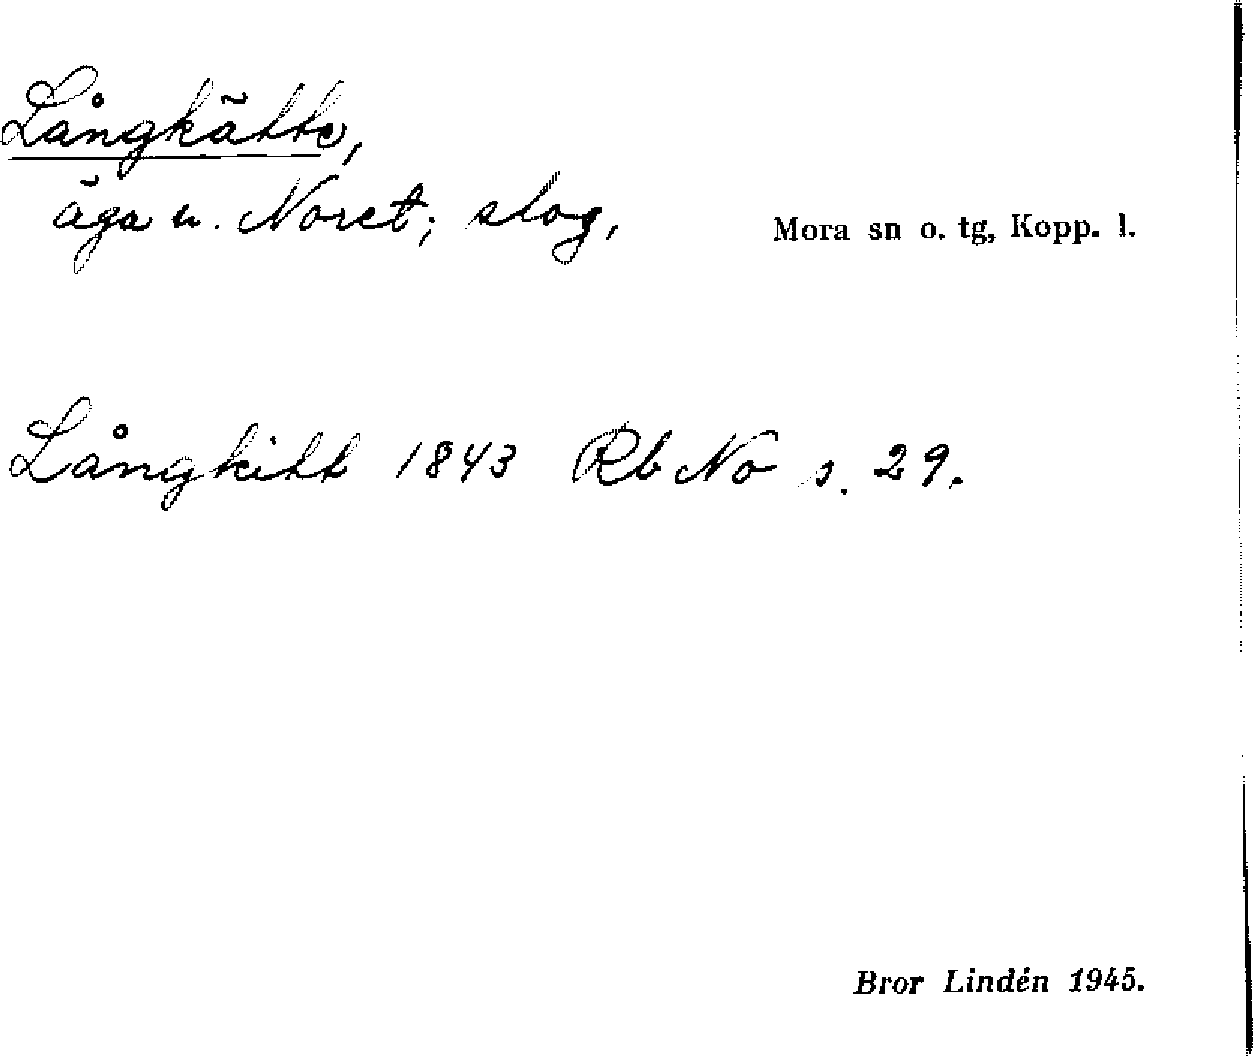 Långkätte,
äga u. Noret; slog,
Mora sn o. tg, Kopp. l.
Långkitt 1843 Rb No s. 29.
Bror Lindén 1945.